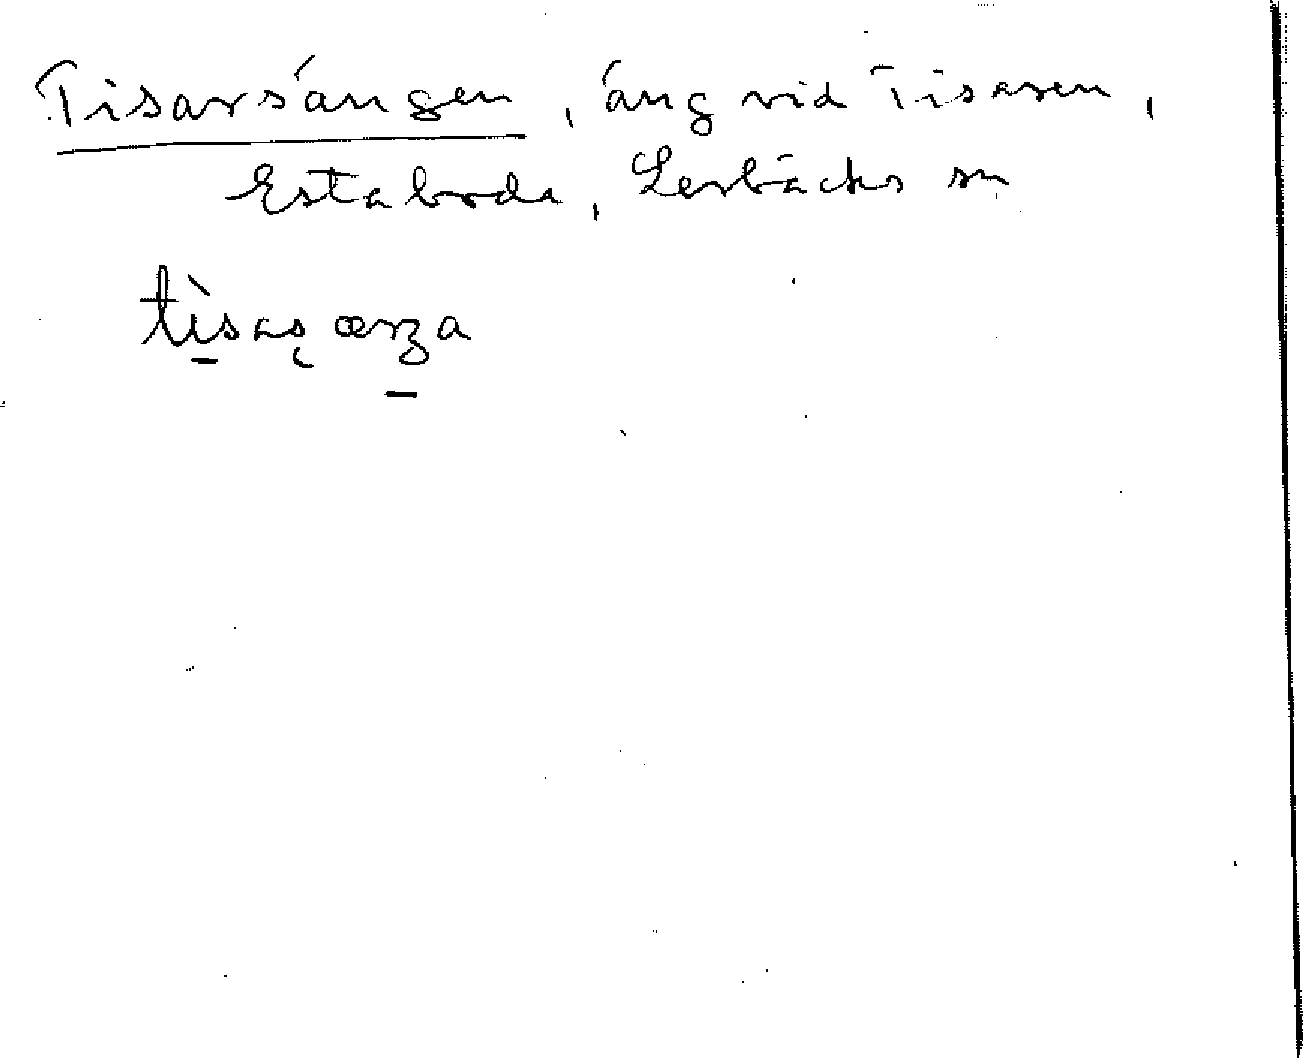 Tisarsängen, äng vid Tisaren,
Estaboda, Lerbäcks sn